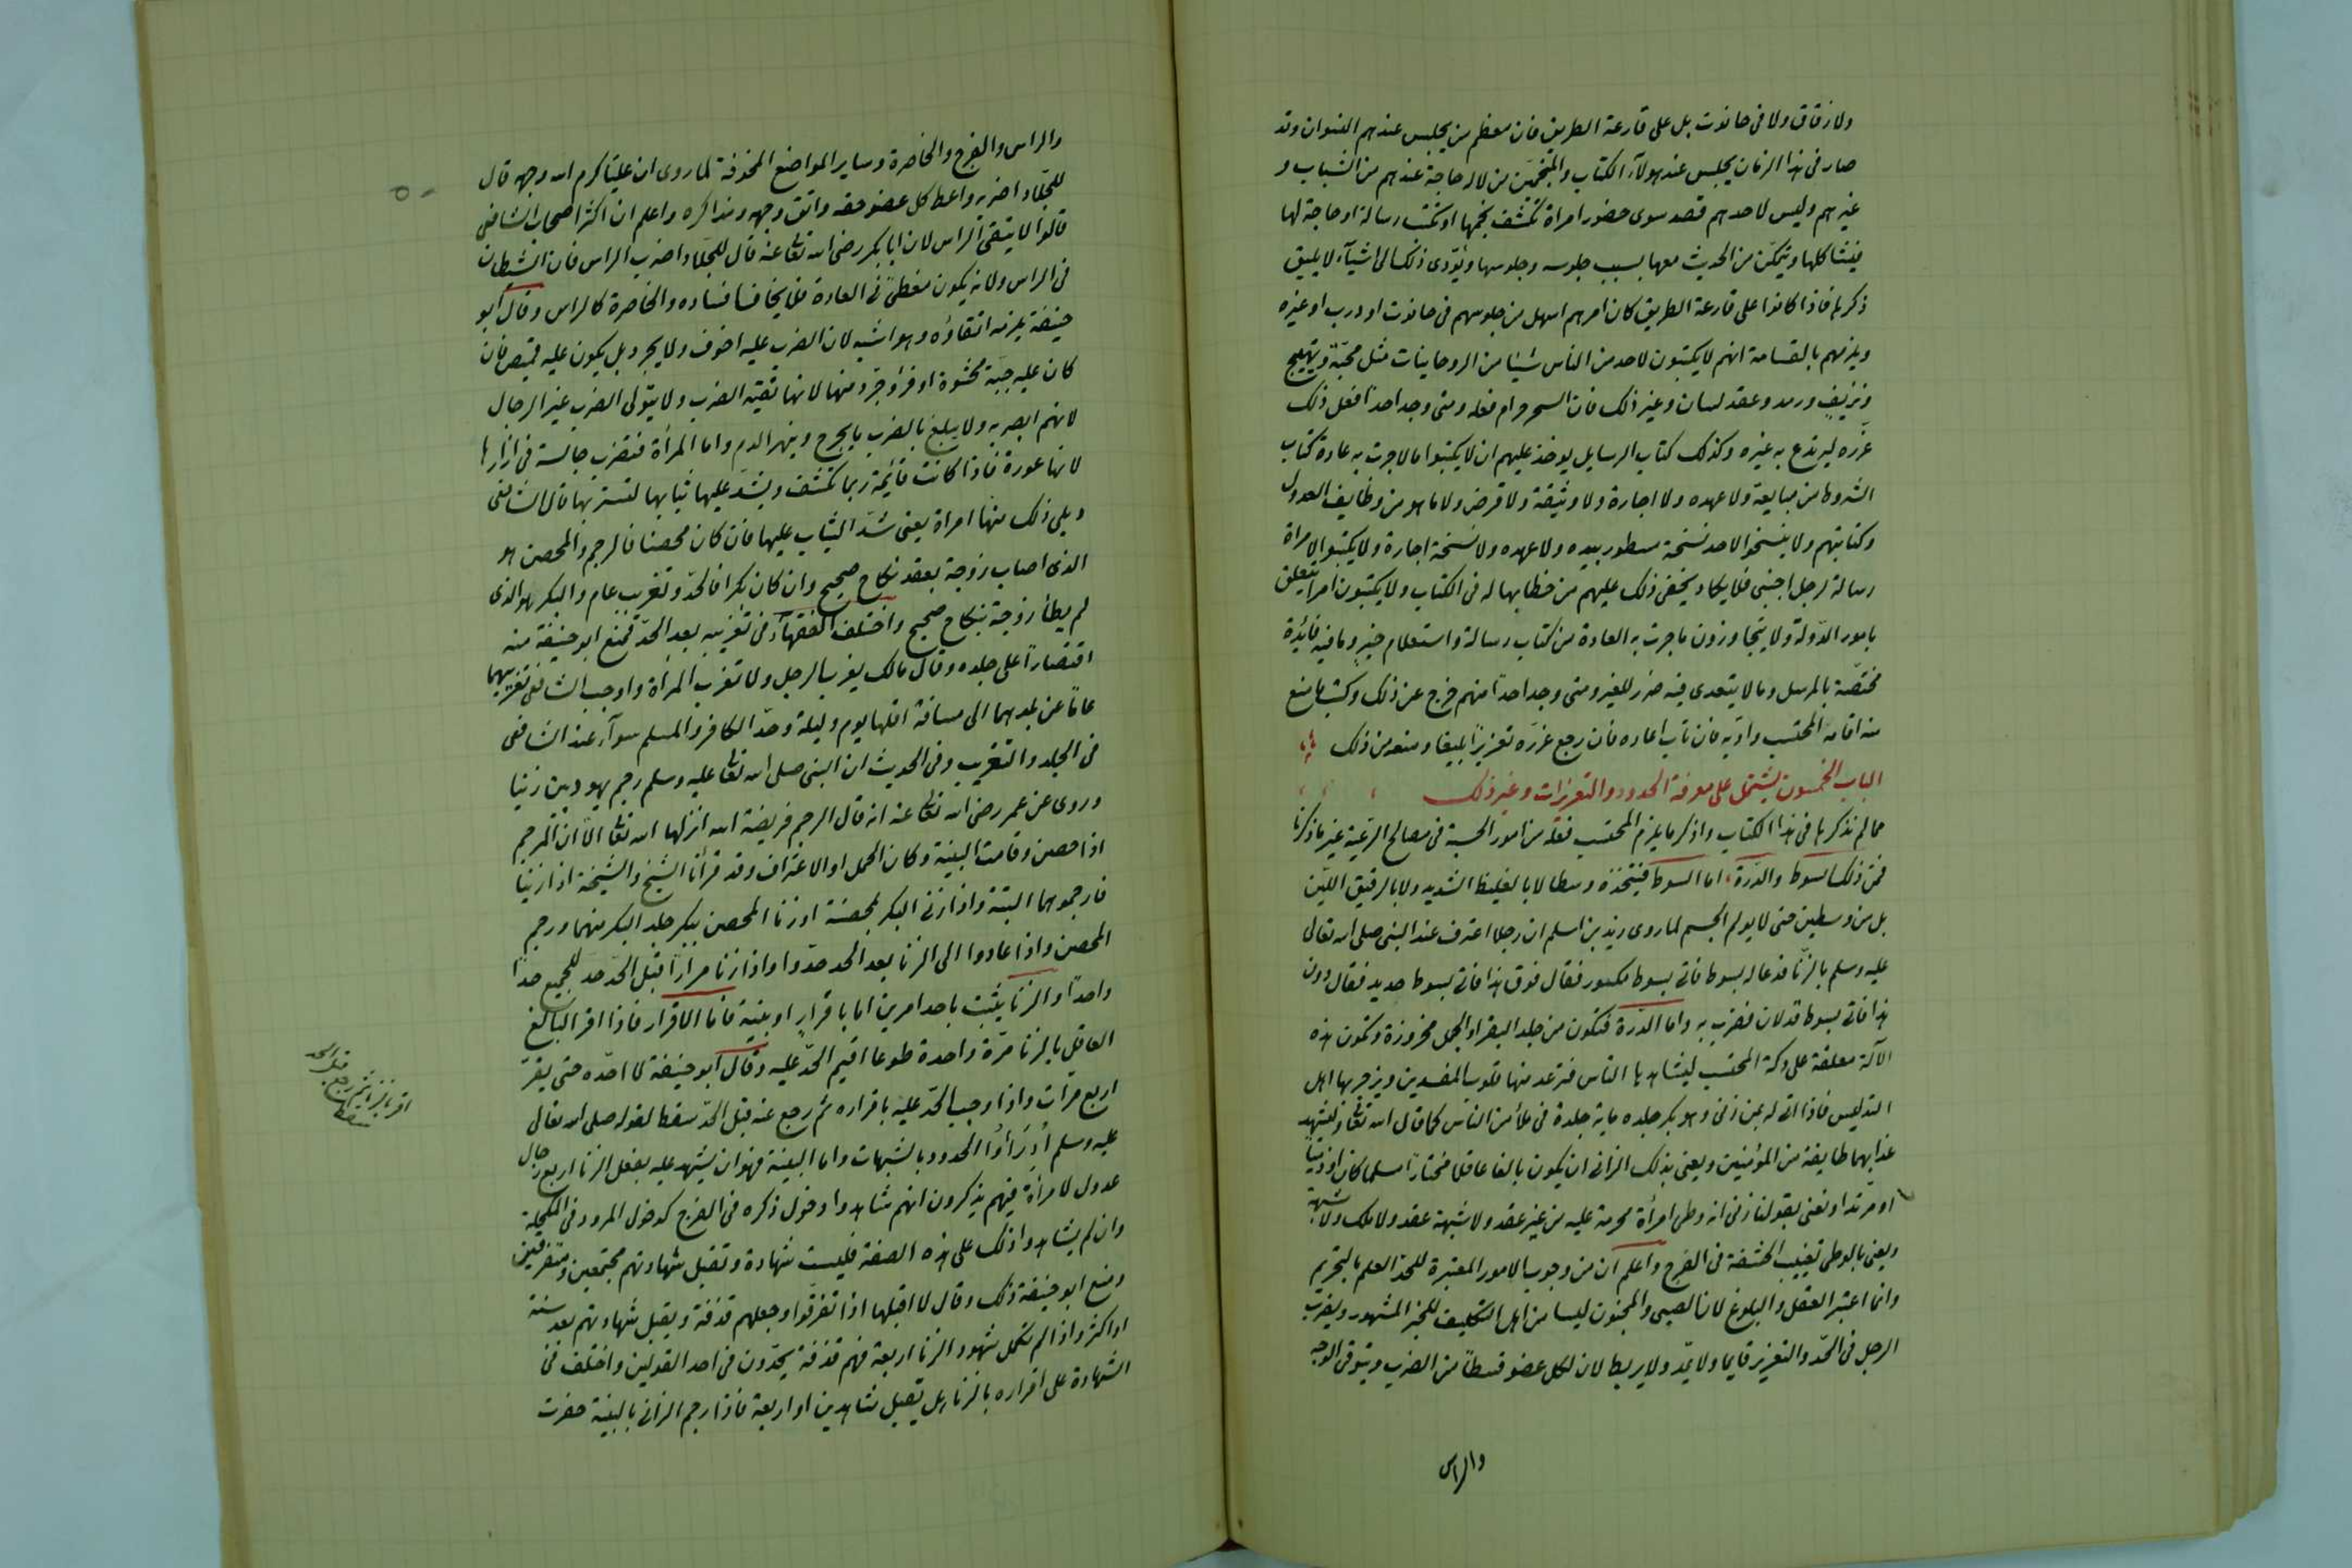 ولا زقاق ولا فى حانوت بل على قارعة الطريق فان معظم من يجلس عندهم النسوان وقد
صار فى هذا الزمان يجلس عند هولآء الكتاب والمنجمين من لا له حاجة عندهم من الشباب و
غيرهم وليس لاحدهم قصد سوى حضور امراة تكشف نجمها او تكتب رسالة او حاجة لها
فيشاكلها ويتمكن من الحديث معها بسبب جلوسه وجلوسها ويؤدى ذلك الى اشيآء لا يليق
ذكرها فاذا كانوا على قارعة الطريق كان امرهم اسهل من جلوسهم فى حانوت او درب او غيره
ويلزمهم بالقسامة انهم لا يكتبون لاحد من الناس شيئا من الروحانيات مثل محبّة وتهيج
ونزيف ورمد وعقد لسان وغير ذلك فان السحر حرام فعله ومتى وجد احدًا فعل ذلك
عزّره ليرتدع به غيره وكذلك كتاب الرسايل يوخذ عليهم ان لا يكتبوا ما لا جرت به عادة كتاب
الشروط من مبايعة ولا عهده ولا اجارة ولا وثيقة ولا قرض ولا ما هو من وظايف العدول
وكتابتهم ولا ينسخوا لاحد نسخة مسطور بيده ولا عهده ولا نسخة اجارة ولا يكتبوا لامراة
رسالة لرجل اجنبى فلا يكاد يخفى ذلك عليهم من خطابها له فى الكتاب ولا يكتبون امرا يتعلق
بامور الدّولة ولا يتجاوزون ما جرت به العادة من كتاب رسالة واستعلام خبرٍ وما فيه فائدة
مختصّة بالمرسل وما لا يتعدى فيه ضرر للغير ومتى وجد احداً منهم خرج عن ذلك وكتب ما منع
منه اقامه المحتسب وادّبه فان تاب اعاده فان رجع عزّره تعزيراً بليغا ومنعه من ذلك
الباب الخمسون يشتمل على معرفة الحدود والتعزيرات وغير ذلك
مما لم نذكرها فى هذا الكتاب واذكر ما يلزم المحتسب فعله من امور الحسبة فى مصالح الرعية غير ما ذكرنا
فمن ذلك السوط والدّرة اما السوط فيتخذه وسطا لا بالغليظ الشديد ولا بالرقيق الليّن
بل من وسطين حتى لا يولم الجسم لما روى زيد بن اسلم ان رجلا اعترف عند النبى صلى الله تعالى
عليه وسلم بالزنا فدعا له بسوط فاتى بسوط مكسور فقال فوق هذا فاتى بسوط جديد فقال دون
هذا فاتى بسوط قد لان فضرب به واما الدّرة فتكون من جلد البقر او الجمل مخروزة وتكون هذه
الآلة معلقة على دكة المحتسب ليشاهدها الناس فترعد منها قلوب المفسدين وينزجر بها اهل
التدليس فاذا اتى له بمن زنى وهو بكر جلده ماية جلدة فى ملأ من الناس كما قال الله تعٰا وليشهد
عذابهما طايفة من المؤمنين ويعنى بذلك الزانى ان يكون بالغا عاقلا مختاراً مسلما كان او ذميّاً
او مرتدا ونعنى بقولنا زنى انه وطى امرأة محرمة عليه من غير عقد ولا شبهة عقد ولا ملك ولا شبهة
ويعنى بالوطى تغييب الحشفة فى الفرج واعلم ان من وجوب الامور المعتبرة للحد العلم بالتحريم
وانما اعتبر العقل والبلوغ لان الصبى والمجنون ليسا من اهل التكليف للخبر المشهور ويضرب
الرجل فى الحدّ والتعزير قايما ولا يمد ولا يربط لان لكل عضو قسطاً من الضرب ويتوقى الوجه
والراس
٥٠
والراس والفرج والخاصرة وساير المواضع المخوفة لما روى ان عليّا كرم الله وجهه قال
للجلّاد اضربه واعط كل عضو حقه واتق وجهه ومذاكره واعلم ان اكثر اصحاب الشافعى
قالوا لا يتقى الراس لان ابا بكر رضى الله تعٰا عنه قال للجلّاد اضرب الراس فان الشيطان
فى الراس ولانه يكون مغطىً فى العادة فلا يخاف افساده والخاصرة كالراس وقال ابو
حنيفة يلزمه اتقاؤه وهو اشبه لان الضرب عليه اخوف ولا يجرد بل يكون عليه قميص فان
كان عليه جبّة محشوة او فرو جرد منها لانها تقيه الضرب ولا يتولى الضرب غير الرجال
لانهم ابصر به ولا يبلغ بالضرب ما يجرح وينهر الدم واما المرأة فتضرب جالسة فى ازارها
لانها عورة فاذا كانت قائمة ربما تكشف ويشدّ عليها ثيابها لتستر بها قال الشافعى
ويلى ذلك منها امراة يعنى شدّ الثياب عليها فان كان محصنا فالرجم والمحصن هو
الذى اصاب زوجة بعقد نكاح صحيح وان كان بكرا فالحدّ وتغريب عام والبكر هو الذى
لم يطأ زوجة بنكاح صحيح واختلف الفقهآء فى تغريبه بعد الحدّ فمنع ابو حنيفة منه
اقتصاراً على جلده وقال مالك يغرب الرجل ولا تغرب المرأة واوجب الشافعى تغريبهما
عاماً عن بلدهما الى مسافة اقلها يوم وليلة وحدّ الكافر والمسلم سوآء عند الشافعى
فى الجلد والتغريب وفى الحديث ان النبى صلى الله تعٰا عليه وسلم رجم يهوديين زنيا
وروى عن عمر رضى الله تعٰا عنه انه قال الرجم فريضة الله انزلها الله تعٰا الّا ان الرجم
اذا حصن وقامت البينة وكان الحمل او الاعتراف وقد قرأنا الشيخ والشيخة اذا زنيا
فارجموهما البتة واذا زنى البكر بمحصنة او زنا المحصن ببكر جلد البكر منهما ورجم
المحصن واذا عادوا الى الزنا بعد الحد حدّوا واذا زنا مراراً قبل الحدّ حدّ للجميع حدّا
واحداً والزنا يثبت باحد امرين اما باقرارٍ او بينة فاما الاقرار فاذا اقر البالغ
العاقل بالزنا مرّة واحدة طوعا اقيم الحدّ عليه وقال ابو حنيفة لا احدّه حتى يقرّ
اربع مرات واذا وجب الحدّ عليه باقراره ثم رجع عنه قبل الحدّ سقط لقوله صلى الله تعالى
عليه وسلم اُدرَأوُا الحدود بالشبهات واما البينة فهو ان يشهد عليه بفعل الزنا اربع رجال
عدول لا مرأة فيهم يذكرون انهم شاهدوا دخول ذكره فى الفرج كدخول المرود فى المكحلة
وان لم يشاهدوا ذلك على هذه الصفة فليست شهادة وتقبل شهادتهم مجتمعين ومتفرقين
ومنع ابو حنيفة ذلك وقال لا اقبلها اذا تفرقوا وجعلهم قذفة ويقبل شهادتهم بعد سنة
او اكثر واذا لم تكمل شهود الزنا اربعة فهم قذفة يحدّون فى احد القولين واختلف فى
الشهادة على اقراره بالزنا هل تقبل شاهدين او اربعة فاذا رجم الزانى بالبينة حفرت
اقر بالزنا ثم رجع قبل الحد
سقط